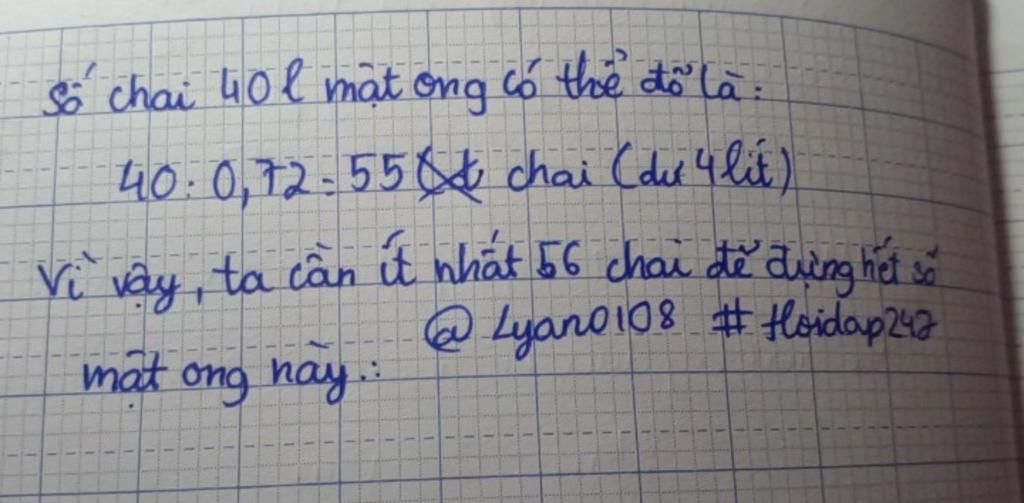 Số chai 40l mật ong có thể đổ là:
40:0,72=55 chai (dư 4 lít)
Vì vậy, ta cần ít nhất 56 chai để đựng hết số
@Lyan0108 #Hoidap247
mật ong này.: